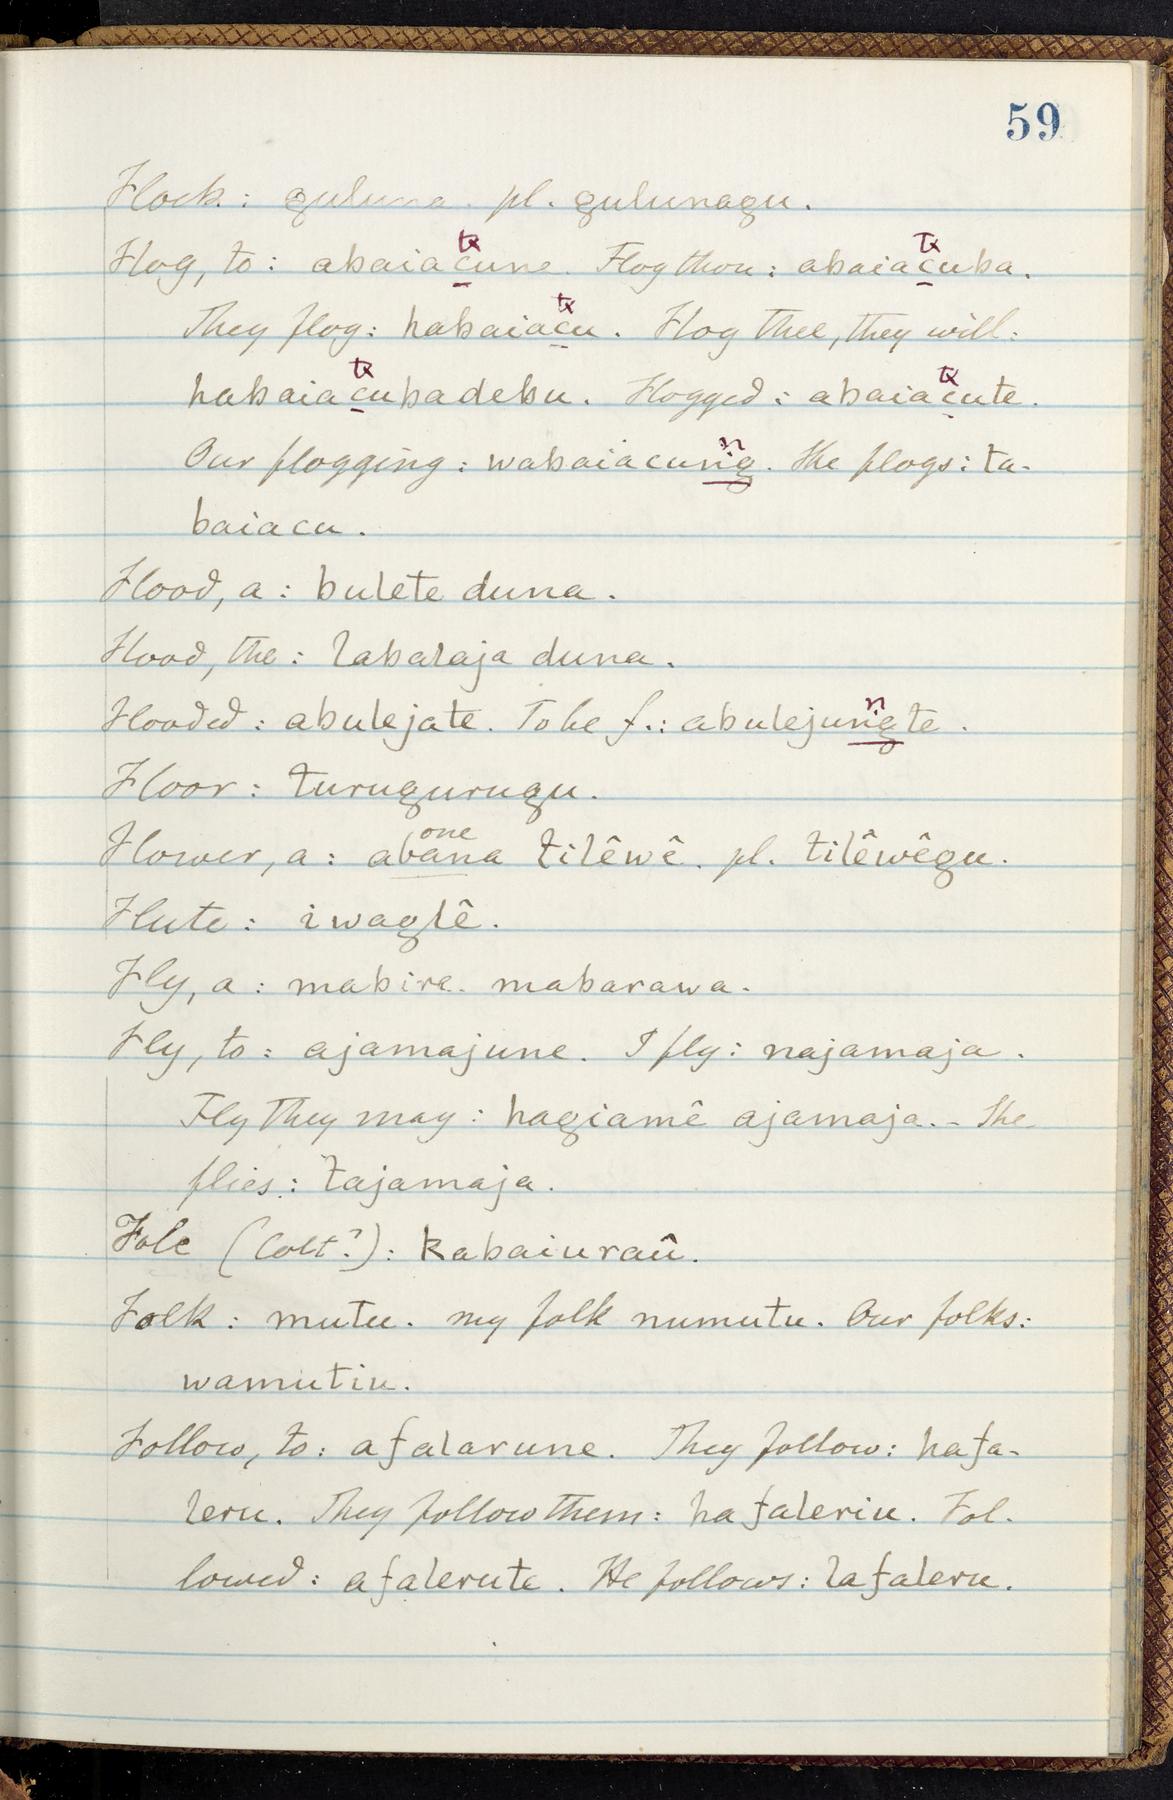 59
Flock: guluna. pl. gulunagu.
Flog, to: abaiacune. Flog thou: abaiacuba.
tx tx
They flog: habaiacu. Flog thee, they will:
tx
habaiacubadebu. Flogged: abaiacute.
tx tx
Our flogging: wabaiacuṅg. She flogs: ta-
n
baiacu.
Flood, a: bulete duna.
Flood, the: labalaja duna.
Flooded: abulejate. To be f.: abulejuṅgte.
n
Floor: turugurugu.
Flower, a: abana tilêwê. pl. tilêwêgu.
one
Flute: iwaglê.
Fly, a: mabire. mabarawa.
Fly, to: ajamajune. I fly: najamaja.
Fly they may: hagiamê ajamaja. - She
flies: tajamaja.
Fole (Colt?): kabaiuraû.
Folk: mutu. my folk numutu. Our folks:
wamutiu.
Follow, to: afalarune. They follow: hafa-
leru. They follow them: hafaleriu. Fol-
lowed: afalerute. He follows: lafaleru.